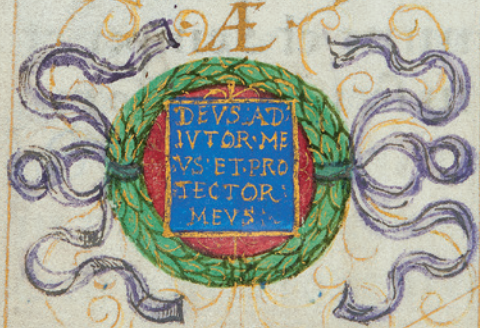 Æ
DEVS·AD
IVTOR·ME
VS·ET·PRO
TECTOR
MEVS